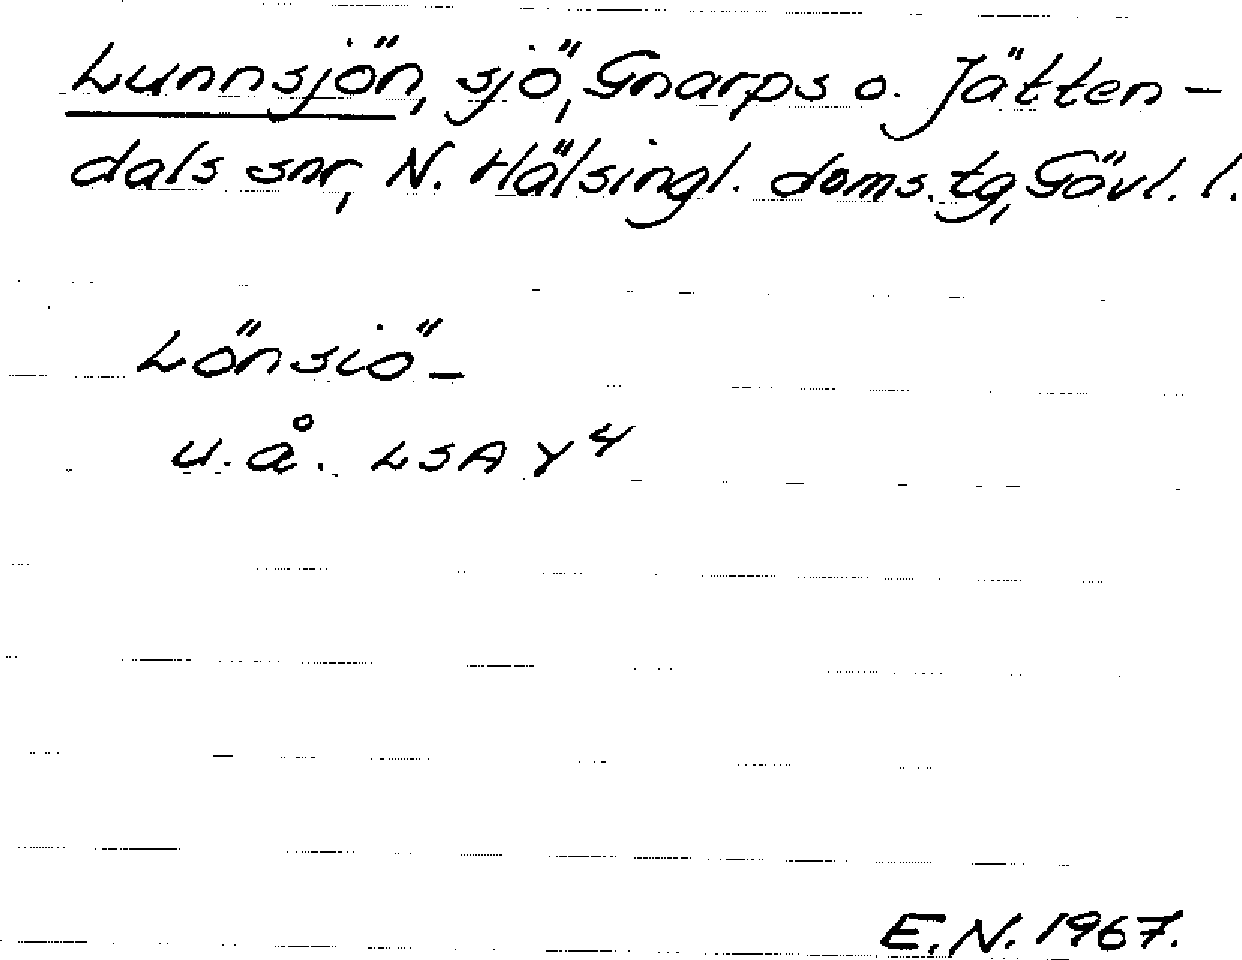 Lunnsjön, sjö, Gnarps o. Jätten-
dals snr, N. Hälsingl. doms. tg, Gävl. l.
Lönsiö-
u. å. LSA Y 4
E. N. 1967.